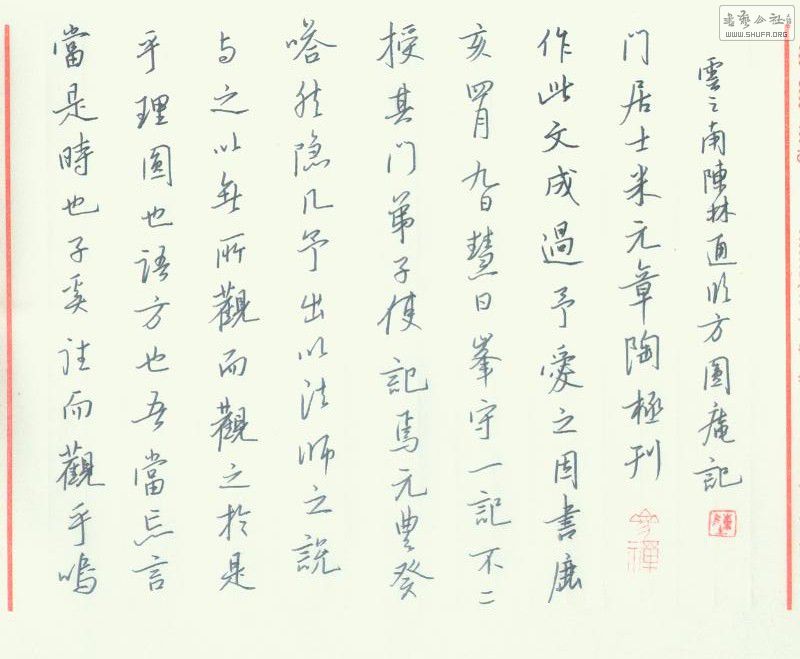 當是時也子奚往而觀乎嗚
乎理圓也語方也吾當忘言
与之以無所觀而觀之於是
嗒然隐几予出以法師之說
授其门弟子使記焉元豊癸
亥四月九日慧日峯守一記不二
作此文成過予愛之因書鹿
门居士米元章陶極刊
雲之南陳林通临方圓庵記
書藝公社
WWW.SHUFA.ORG